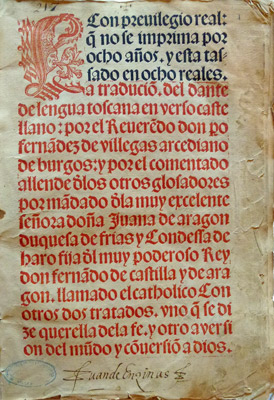 Con preuilegio real:
q̃ no se imprima por
ocho años. y esta tas-
sado en ocho reales.
La traduciõ. del dante
de lengua toscana en verso caste
llano: por el Reuerẽdo don p̃o
fernãdez de villegas arcediano
de burgos: y por el comentado
allende d̃los otros glosadores
por mãdado d̃la muy excelente
señora doña Juana de aragon
duquesa de frias y Condessa de
haro fija d̃l muy poderoso Rey
don fernãdo de castilla y de ara
gon. llamado el catholico Con
otros dos tratados. vno q̃ se di
ze querella de la fe. y otro auersi
on del mũdo y cõuersiõ a dios.
Juan de enzinas